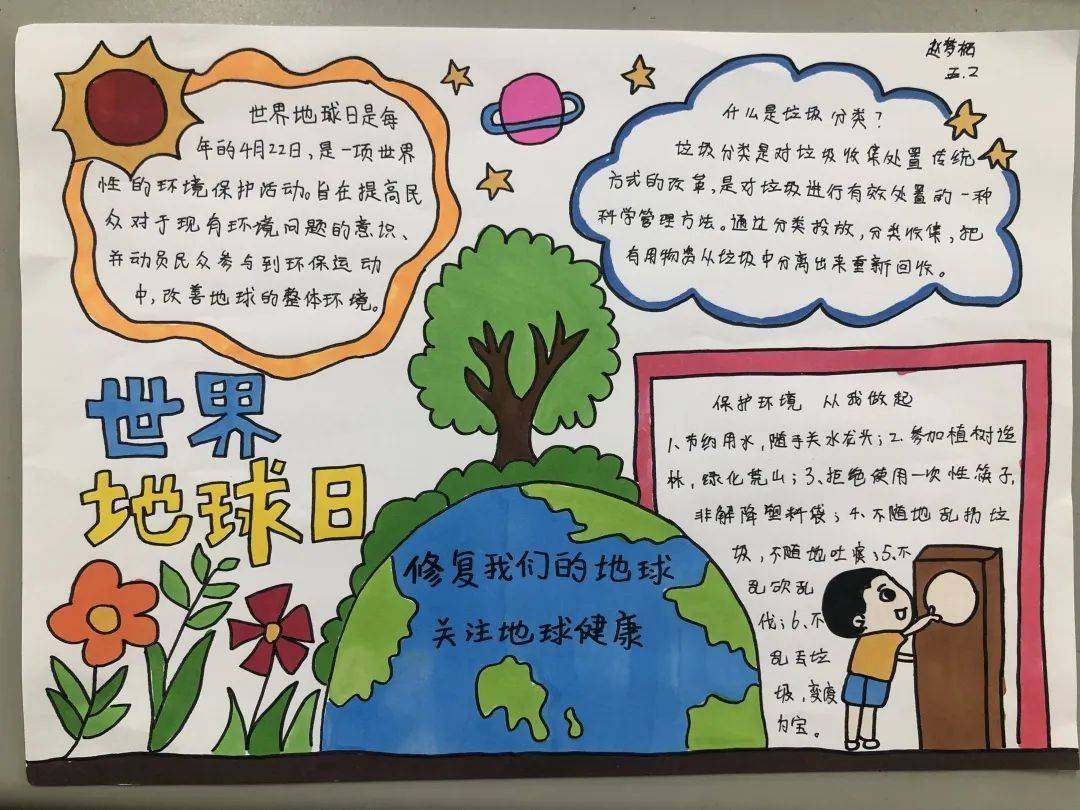 赵梦
五.2
世界地球日是每
年的4月22日,是一项世界
性的环境保护活动。自在提高民
众对于现有环境问题的意识、
并动员民众参与到环保运动
中,改善地球的整体环境。
什么是垃圾分类?
垃圾分类是对垃圾收集处置传统
方式的改革,是对垃圾进行有效处置的一种
科学管理方法。通过分类投放,分类收集,把
有用物资从垃圾中分离出来重新回收。
世界
地球日
修复我们的地球
关注地球健康
保护环境 从我做起
1、节约用水,随手关水龙头;2、参加植树造
林,绿化荒山;3、拒绝使用一次性筷子,
非解降塑料袋;4、不随地乱扔垃
圾,不随地吐痰;5、不
乱砍乱
伐;6、不
乱丢垃
圾,变废
为宝。